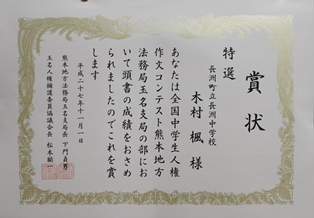 賞状
特選
長洲町立長洲中学校
木村 楓 様
あなたは全国中学生人権
作文コンテスト熊本地方
法務局玉名支局の部にお
いて頭書の成績をおさめ
られましたのでこれを賞
します
平成二十七年十一月一日
熊本地方法務局玉名支局長 下門貞男
玉名人権擁護委員協議会長 松本順一